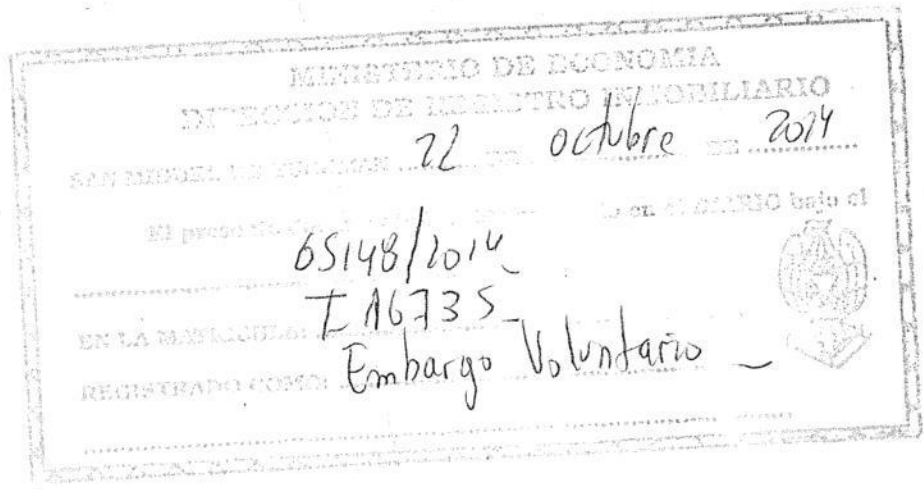 MINISTERIO DE ECONOMIA
DIRECCION DE REGISTRO INMOBILIARIO
SAN MIGUEL DE TUCUMAN 22 DE octubre DE 2014
El en el DIARIO bajo el
65148/2014
EN LA MATRICULA: I 16735
REGISTRADO COMO: Embargo Voluntario